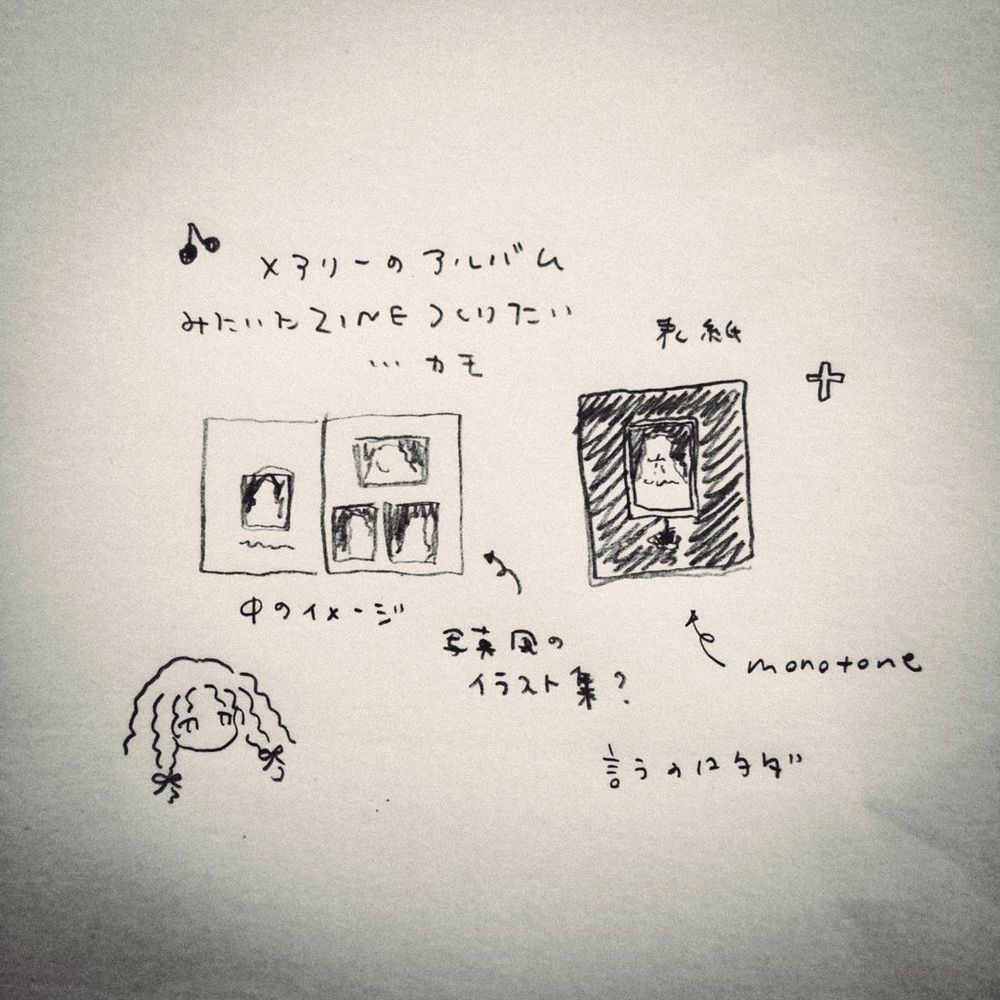 メアリーのアルバム
みたいなZINEつくりたい
…カモ
表紙
中のイメージ
写真風の
イラスト集？
monotone
言うのはタダ